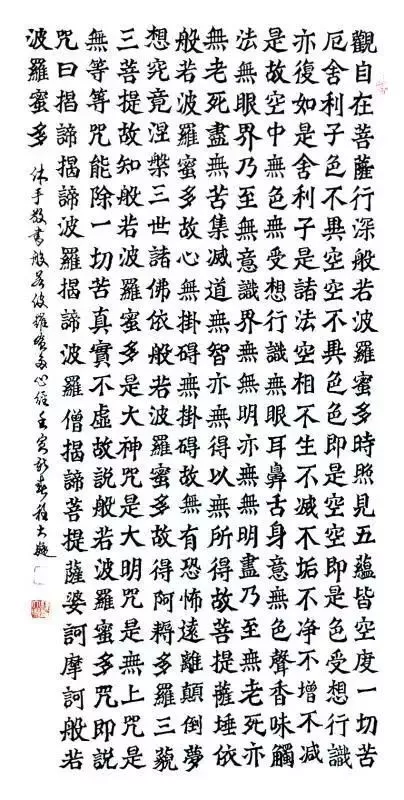 觀自在菩薩行深般若波羅蜜多時照見五蘊皆空度一切苦
厄舍利子色不異空空不異色色即是空空即是色受想行識
亦復如是舍利子是諸法空相不生不滅不垢不净不增不减
是故空中無色無受想行識無眼耳鼻舌身意無色聲香味觸
法無眼界乃至無意識界無無明亦無無明盡乃至無老死亦
無老死盡無苦集滅道無智亦無得以無所得故菩提薩埵依
般若波羅蜜多故心無掛碍無掛碍故無有恐怖遠離顛倒夢
想究竟涅槃三世諸佛依般若波羅蜜多故得阿耨多羅三藐
三菩提故知般若波羅蜜多是大神咒是大明咒是無上咒是
無等等咒能除一切苦真實不虛故説般若波羅蜜多咒即説
咒曰揭諦揭諦波羅揭諦波羅僧揭諦菩提薩婆訶摩訶般若
波羅蜜多
手敬書般若波羅蜜多心經壬寅新春程大